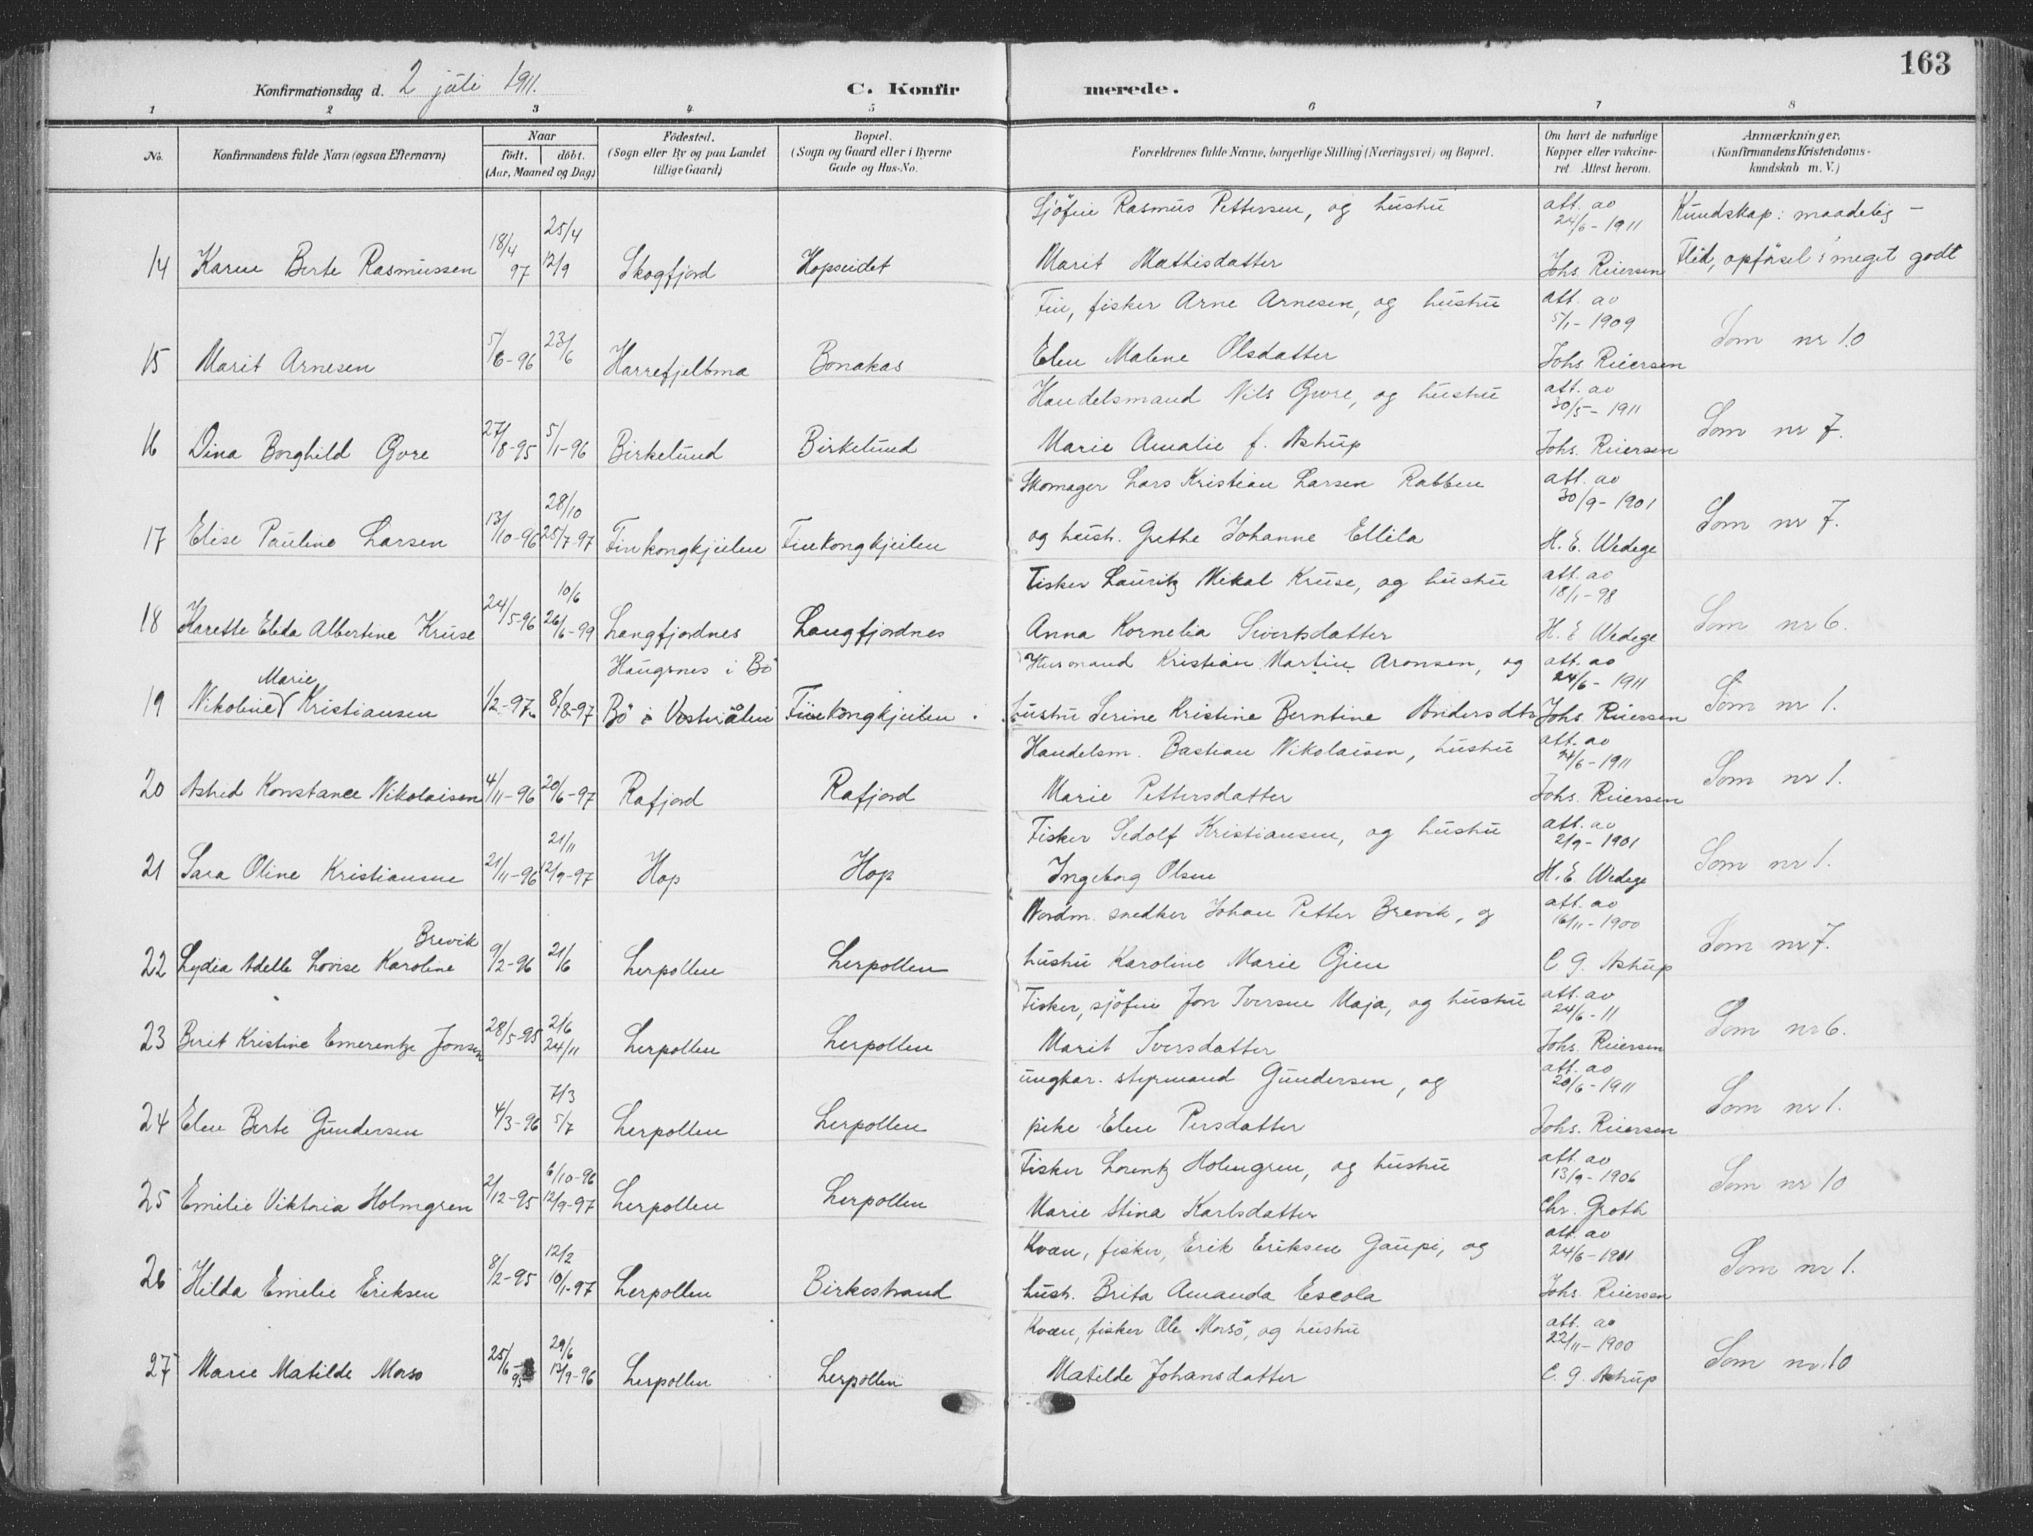 163
Konfirmationsdag d. 2 juli 1911. C. Konfirmerede.
1 2 3 4. 5 6 7 8
No. Konfirmandens fulde Navn (ogsaa Efternavn) Naar födt. döbt. (Aar, Maaned og Dag) Födested. (Sogn eller By og paa Landet tillige Gaard) Bopæl. (Sogn og Gaard eller i Byerne Gade og Hus-No. Forældrenes fulde Navne, borgerlige Stilling (Næringsvei) og Bopæl. Om havt de naturlige Kopper eller vakcineret Attest herom. Anmærkninger, (Konfirmandens Kristendomskundskab m. V.)
25/4 Sjöfin Rasmus Pettersen, og hustru att. av 24/6-1911 Kundskap: maadelig -
14 Karen Berte Rasmussen 18/4 97 12/9 Skogfjord Hopseidet Marit Mathisdatter Johs Reiersen Flid, opførsel: meget godt
Fin, fisker Arne Arnesen, og hustru att. av 5/1-1909
15 Marit Arnesen 5/6-96 23/6 Harrefjelbma Bonakas Elen Malene Olsdatter Johs Reiersen Som nr 10
Handelsmand Nils Gvre, og hustru att. av 30/5-1911
16 Dina Borghild Gvre 27/8-95 5/1-96 Birkelund Birkelund Marie Amalie f. Astrup Johs. Reiersen Som nr 7.
28/10 Skomager Lars Kristian Larsen Rabben att. av 30/9-1901
17 Elise Pauline Larsen 13/10-96 25/7-97 Finkongkjeilen Finkongkjeilen og hustr. Grethe Johanne Ellila H. E. Wedege Som nr 7.
10/6 Fisker Lauritz Mikal Kruse, og hustru att. av 18/1-98
18 Karette Elida Albertine Kruse 24/5-96 26/6-99 Langfjordnes Langfjordnes Anna Kornelia Sivertsdatter H. E Wedege Som nr 6.
Marie Haugsnes i Bö Husmand Kristian Martin Aronsen, og att. av 24/6-1911
19 Nikoline Kristiansen 1/2-97 8/8-97 Bö i Vesterålen Finkongkjeilen. hustru Serine Kristine Berntine Andersdtr Johs. Reiersen Som nr 1.
Handelsm. Bastian Nikolaisen, hustru att. av 24/6-1911
20 Astrid Konstance Nikolaisen 4/11-96 20/6-97 Rafjord Rafjord Marie Pettersdatter Johs. Reiersen Som nr 1.
21/11 Fisker Sedolf Kristiansen, og hustru att. av 2/9-1901
21 Sara Oline Kristiansen 21/11-96 12/9-97 Hop Hop Ingeborg Olsen H. E. Wedege Som nr 1.
Brevik Nordm. snedker Johan Petter Brevik, og att. av 16/11-1900
22 Lydia Adelle Lovise Karoline 9/2-96 21/6 Lerpollen Lerpollen hustru Karoline Marie Gjen C G. Astrup Som nr 7.
Fisker, sjöfin Jon Iversen Maja, og hustru att. av 24/6-11
23 Berit Kristine Emerentze Jonsen 28/5-95 2/6 24/11 Lerpollen Lerpollen Marit Iversdatter Johs. Reiersen Som nr 6.
7/3 ungkar. styrmand Gundersen, og att. av 20/6-1911
24 Elen Berte Gundersen 4/3-96 5/7 Lerpollen Lerpollen pike Elen Persdatter Johs. Reiersen Som nr 1.
6/10-96 Fisker Lorentz Holmgren, og hustru att. av 13/9-1906
25 Emilie Viktoria Holmgren 2/12-95 12/9-97 Lerpollen Lerpollen Marie Stina Karlsdatter Chr. Groth Som nr 10
12/2 Kvæn, fisker, Erik Eriksen Gaupi, og att. av 24/6-1901
26 Hilda Emilie Eriksen 8/2-95 10/1-97 Lerpollen Birkestrand hustr. Brita Amanda Escola Johs. Reiersen Som nr 1.
29/6 Kvæn, fisker Ole Morsö, og hustru att. av 22/11-1900
27 Marie Matilde Morso 25/6-95 13/9-96 Lerpollen Lerpollen Matilde Johansdatter C. G. Astrup Som nr 10